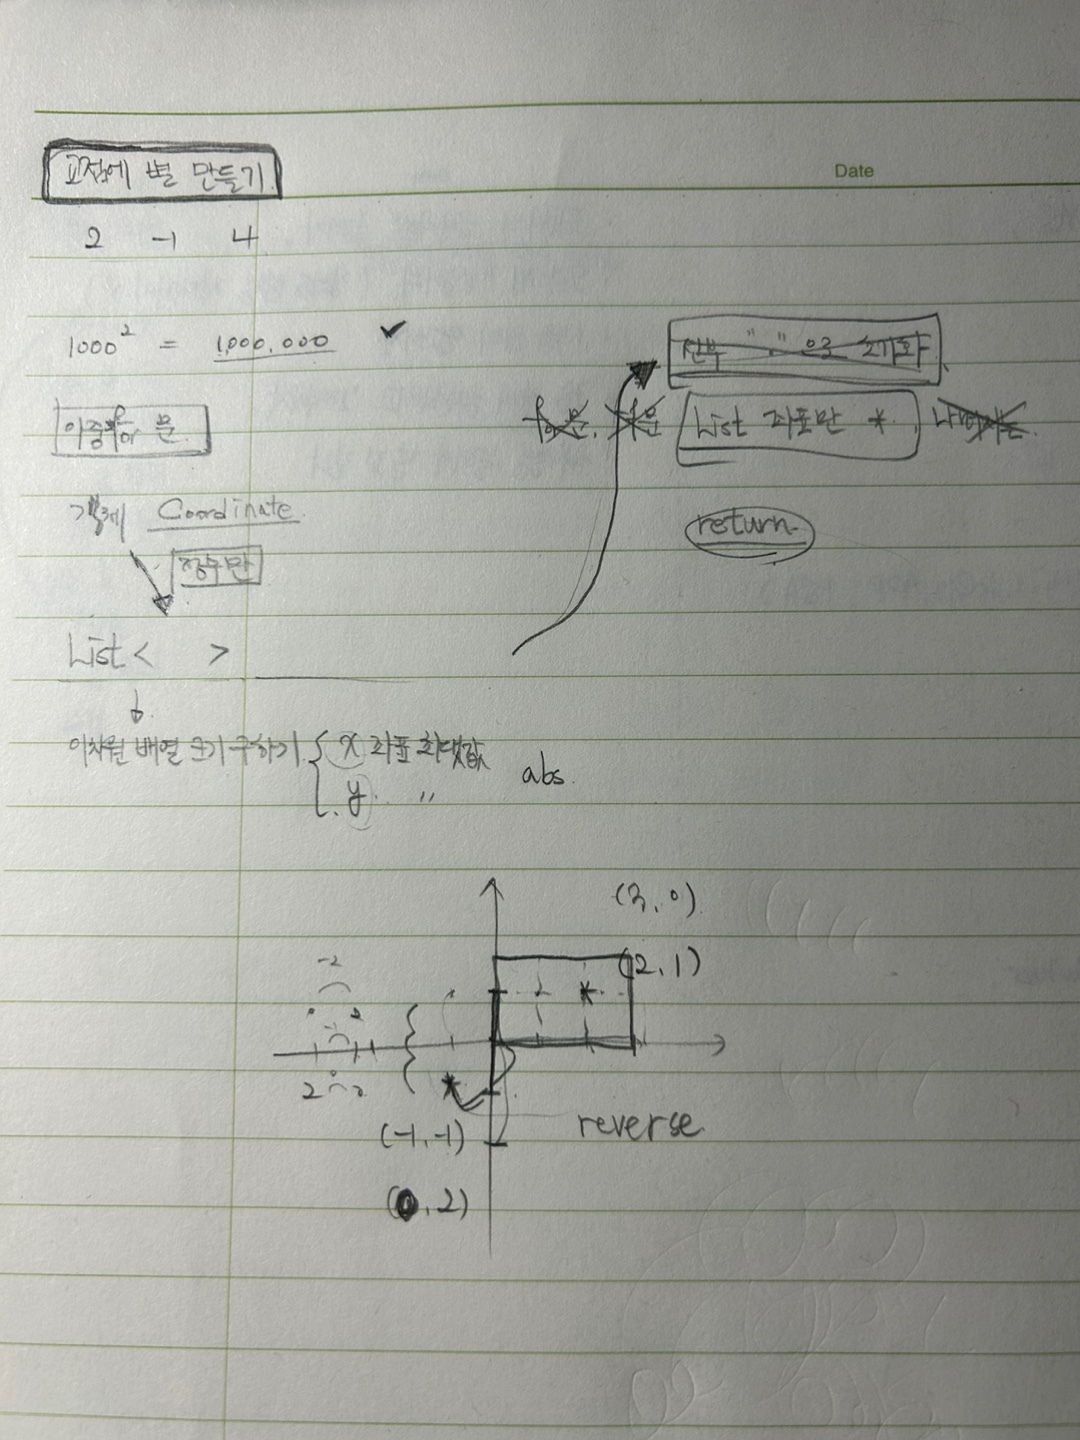 교점에 별 만들기.
Date
2 -1 4
1000² = 1,000,000 ✔
전부 "." 으로 초기화
이중 for 문.
for문, if문 List 좌표만 *.
객체 Coordinate
return.
정수만
List < >
이차원 배열 크기 구하기 { x 좌표 최댓값
y. 〃
abs.
(3, 0)
-2
(2, 1)
*
2
*
(-1, -1)
reverse.
(0, 2)